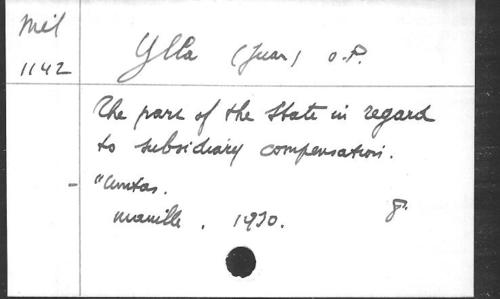 Mél
1142
Ylla (Juan) O.P.
The part of the State in regard
to subsidiary compensation.
"Unitas.
Manille. 1930.
8°.